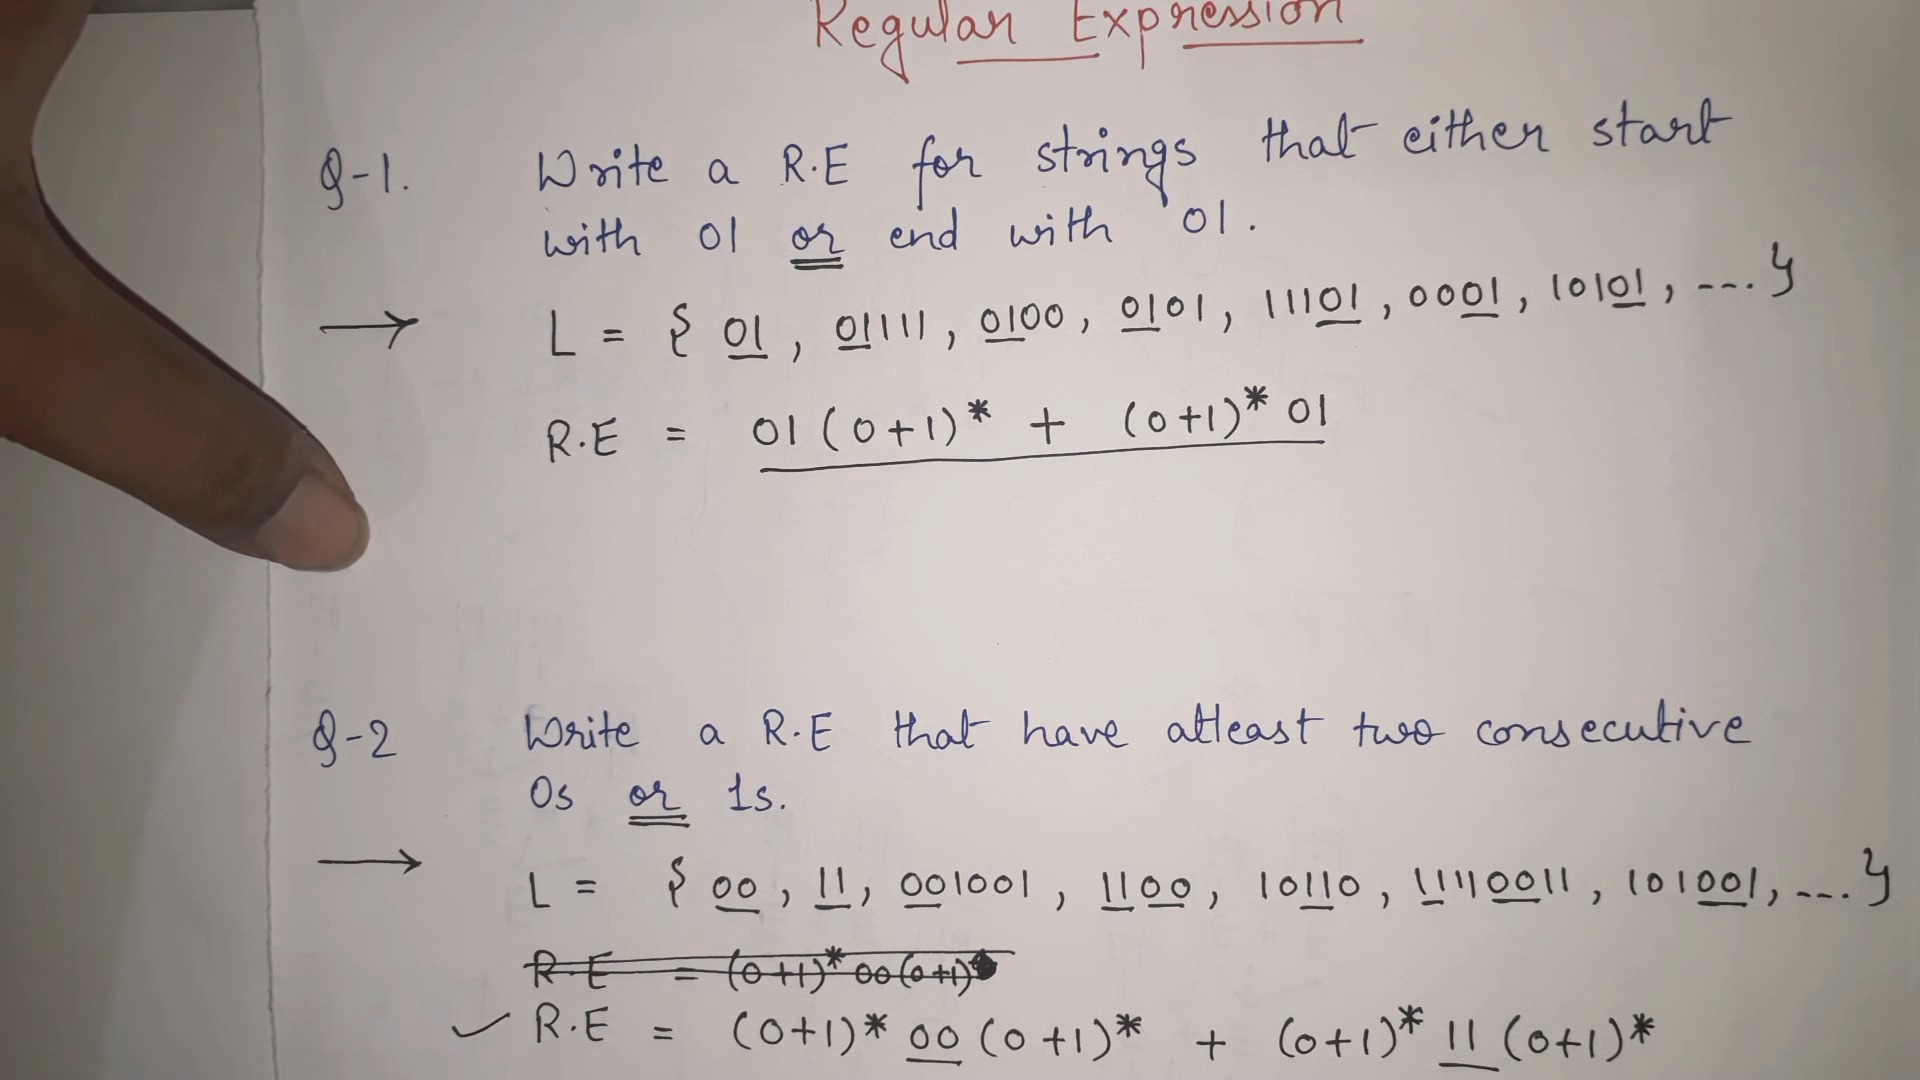 Regular Expression
Q-1. Write a R.E for strings that either start
with 01 or end with 01.
→ L = { 01, 01111, 0100, 0101, 11101, 0001, 10101, ---. }
R.E = 01(0+1)* + (0+1)* 01
Q-2 Write a R.E that have atleast two consecutive
0s or 1s.
→ L = { 00, 11, 001001, 1100, 10110, 11110011, 101001, ---. }
R.E = (0+1)* 00(0+1)
✓ R.E = (0+1)* 00 (0+1)* + (0+1)* 11 (0+1)*